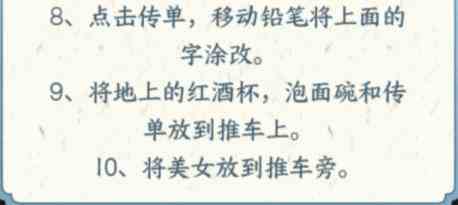 8、点击传单，移动铅笔将上面的
字涂改。
9、将地上的红酒杯，泡面碗和传
单放到推车上。
10、将美女放到推车旁。